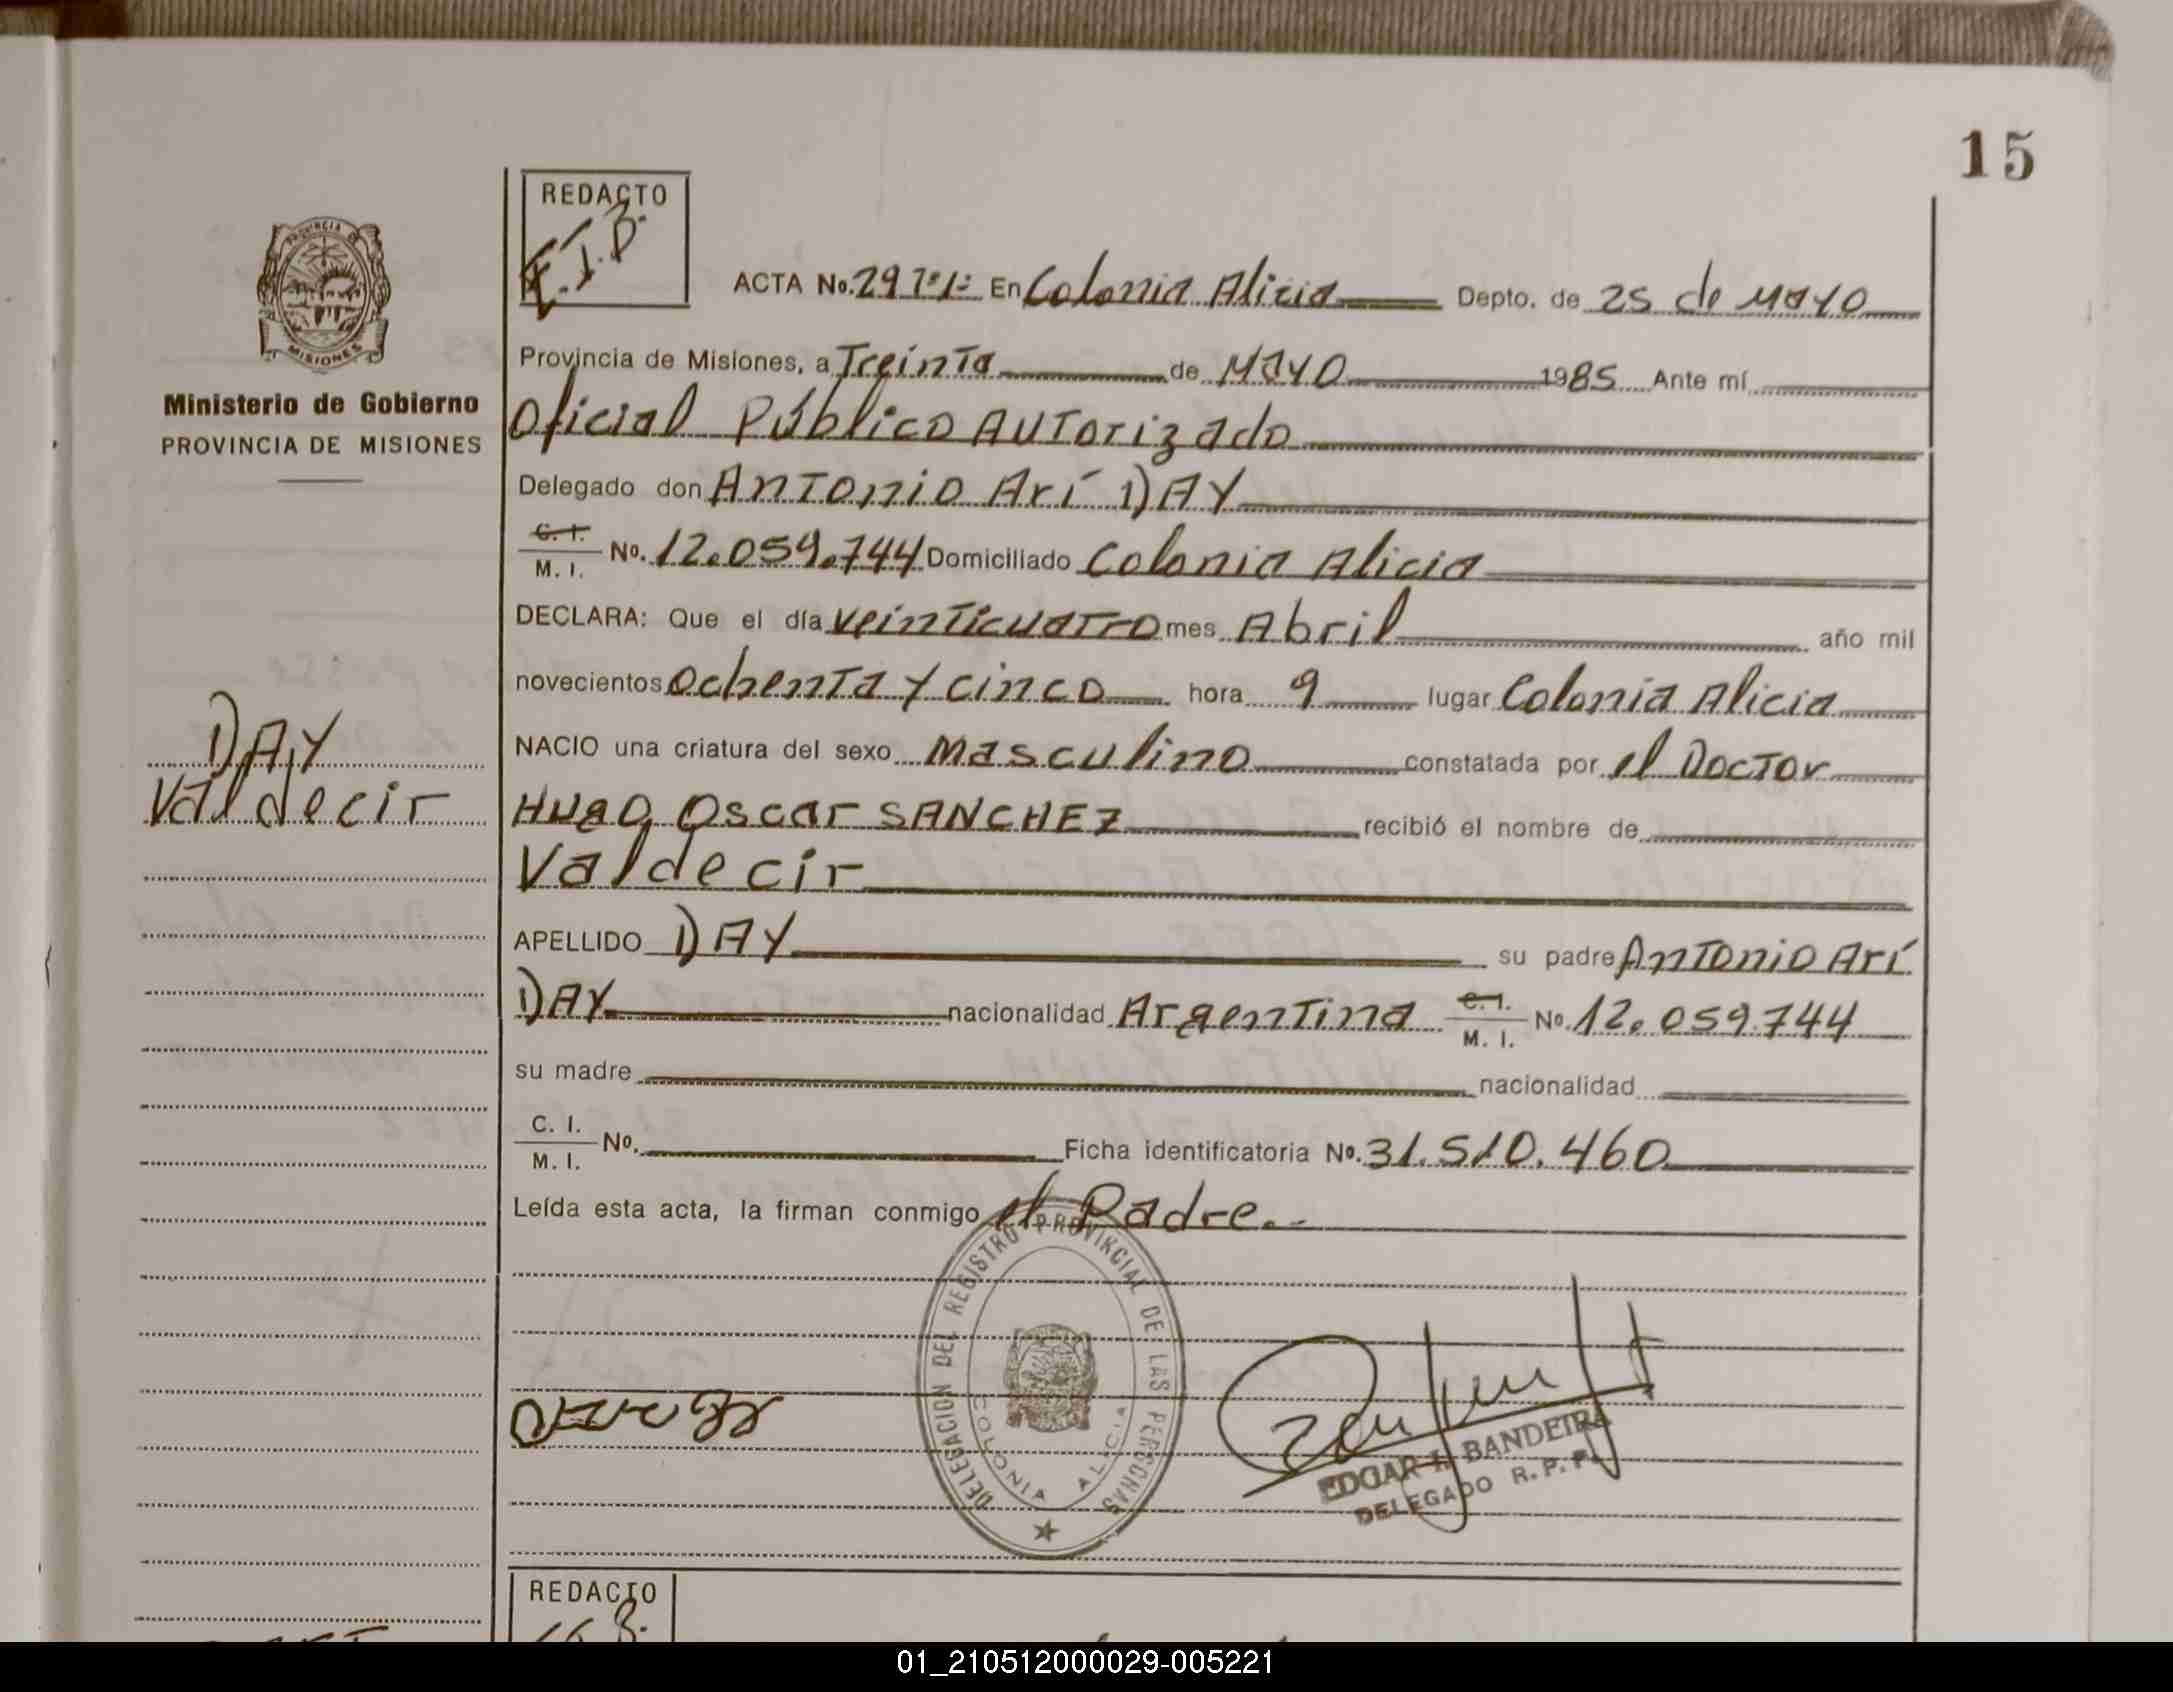 15
REDACTO
E.I.B.
PROVINCIA DE
MISIONES
Ministerio de Gobierno
PROVINCIA DE MISIONES
ACTA No. 29 En Colonia Alicia Depto. de 25 de Mayo
Provincia de Misiones, a Treinta de Mayo 1985 Ante mí
Oficial Público Autorizado
Delegado don Antonio Arí DAY
C. I.
M. I. No. 12.059.744 Domiciliado Colonia Alicia
DECLARA: Que el día veinticuatro mes Abril año mil
novecientos ochenta y cinco hora 9 lugar Colonia Alicia
NACIO una criatura del sexo Masculino constatada por el Doctor
Hugo Oscar SANCHEZ recibió el nombre de
Valdecir
DAY
Valdecir
APELLIDO DAY su padre Antonio Arí
DAY nacionalidad Argentina C. I.
M. I. No. 12.059.744
su madre nacionalidad
C. I.
M. I. No. Ficha identificatoria No. 31.510.460
Leída esta acta, la firman conmigo el Padre.
DELEGACION DEL REGISTRO PROVINCIAL DE LAS PERSONAS
COLONIA ALICIA
EDGAR I. BANDEIRA
DELEGADO R. P. P.
REDACTO
01_210512000029-005221